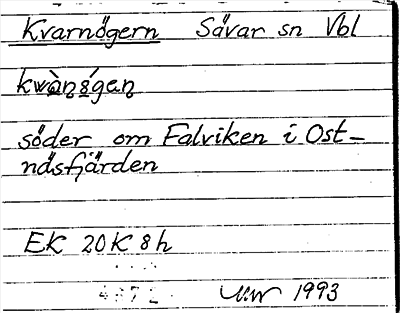 Kvarnögern Sävar sn Vbl
söder om Falviken i Ost-
näsfjärden
EK 20K8h
1993